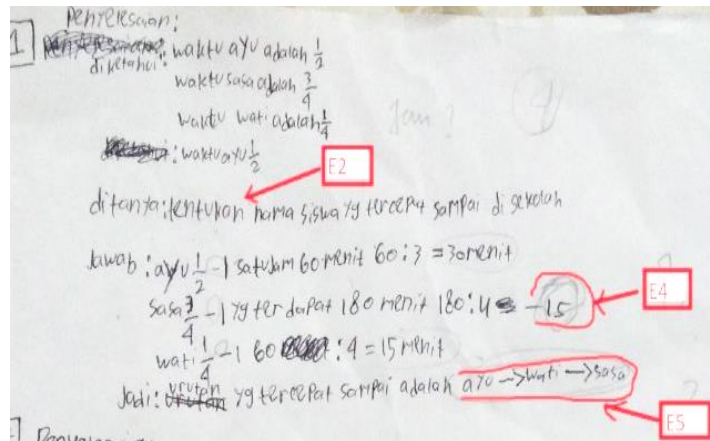 Penyelesaian:
1
diketahui: waktu ayu adalah 1/2
waktu sasa adalah 3/4
waktu wati adalah 1/4
Jam?
4
: waktu ayu 1/2
E2
ditanya: tentukan nama siswa yg tercepat sampai di sekolah
Jawab: ayu 1/2 - 1 satu jam 60 menit 60:3 = 30 menit
E4
sasa 3/4 - 1 yg terdapat 180 menit 180:4 - 15
wati 1/4 - 1 60 : 4 = 15 menit
Jadi: urutan yg tercepat sampai adalah ayu -> wati -> sasa
E5